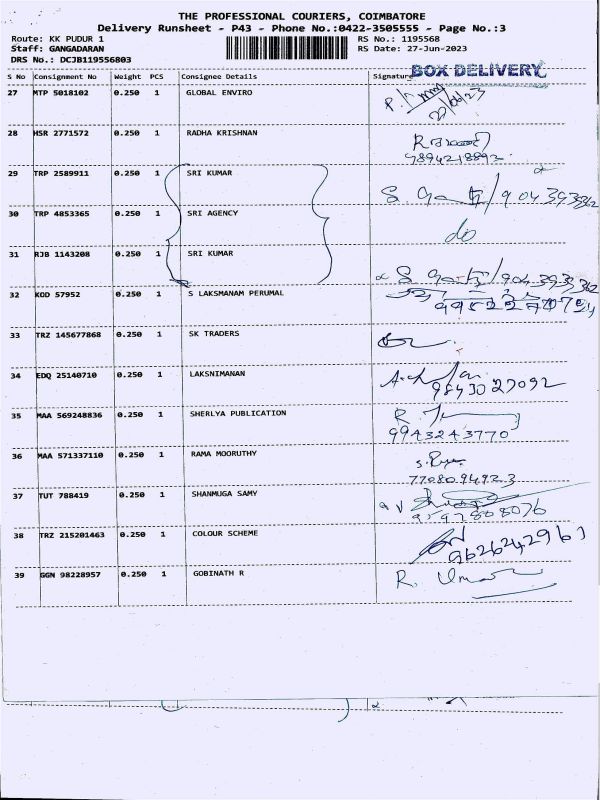 THE PROFESSIONAL COURIERS, COIMBATORE
Delivery Runsheet - P43 - Phone No.:0422-3505555 - Page No.:3
Route: KK PUDUR 1 RS No.: 1195568
Staff: GANGADARAN RS Date: 27-Jun-2023
DRS No.: DCJB119556803
S No Consignment No Weight PCS Consignee Details Signature BOX DELIVERY
27 MTP 5018102 0.250 1 GLOBAL ENVIRO
28 HSR 2771572 0.250 1 RADHA KRISHNAN
9894218892
29 TRP 2589911 0.250 1 SRI KUMAR
30 TRP 4853365 0.250 1 SRI AGENCY do
31 RJB 1143208 0.250 1 SRI KUMAR
32 KOD 57952 0.250 1 S LAKSMANAM PERUMAL
33 TRZ 145677868 0.250 1 SK TRADERS
34 EDQ 25140710 0.250 1 LAKSNIMANAN
9843027092
35 MAA 569248836 0.250 1 SHERLYA PUBLICATION
9943243770
36 MAA 571337110 0.250 1 RAMA MOORUTHY
7708094923
37 TUT 788419 0.250 1 SHANMUGA SAMY
38 TRZ 215201463 0.250 1 COLOUR SCHEME
9626242961
39 GGN 98228957 0.250 1 GOBINATH R R. Umar